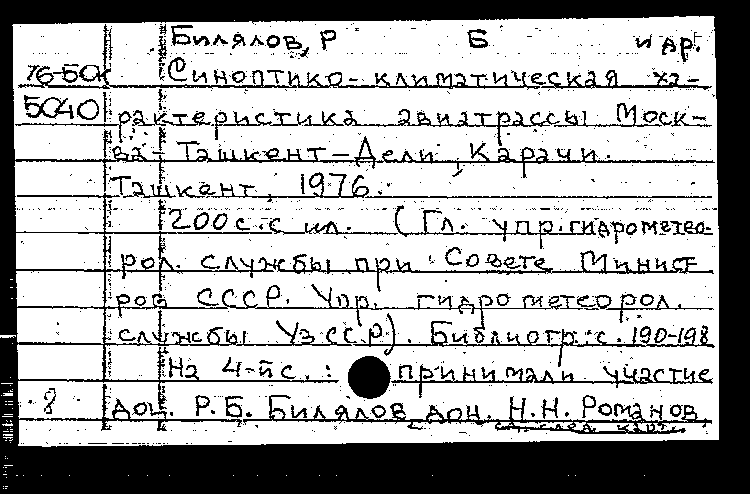 Билялов, Р Б и др.
76-50к Синоптико-климатическая ха-
5040 рактеристика авиатрассы Моск-
ва-Ташкент-Дели, Карачи.
Ташкент, 1976.
200 с. с ил. (Гл. упр. гидрометео-
рол. службы при Совете Минист-
ров СССР. Упр. гидрометеорол.
службы УзССР). Библиогр: с. 190-198
На 4-й с.: принимали участие
8 доц. Р.Б. Билялов, доц. Н.Н. Романов,
см. след. карт.